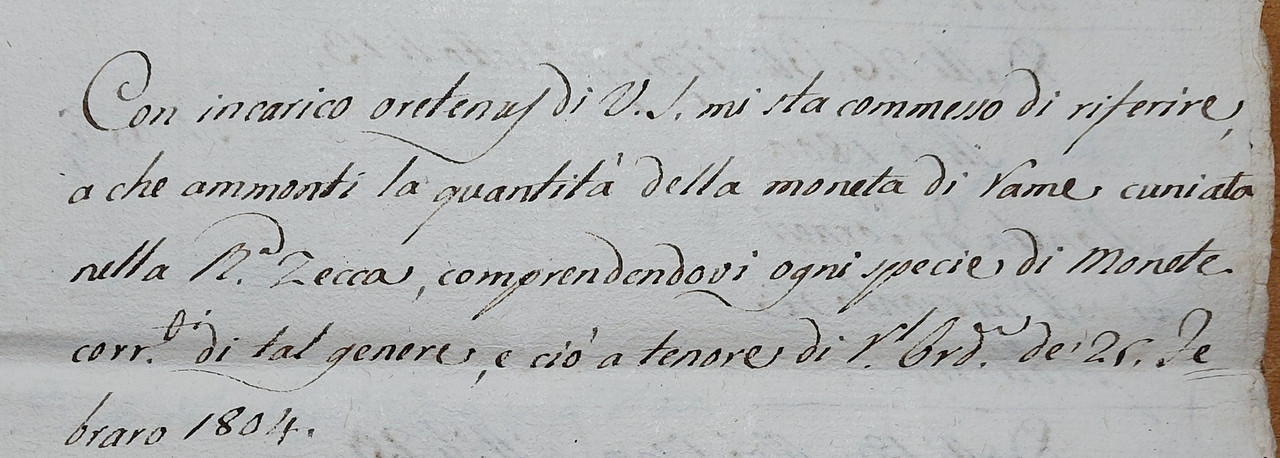 Con incarico oretenus di V. S. mi sta commesso di riferire,
a che ammonti la quantità della moneta di rame cuniata
nella R.ª Zecca, comprendendovi ogni specie di Monete
corr.ti di tal genere, e ciò a tenore di r.l Ord.e de' 25. Fe
braro 1804.